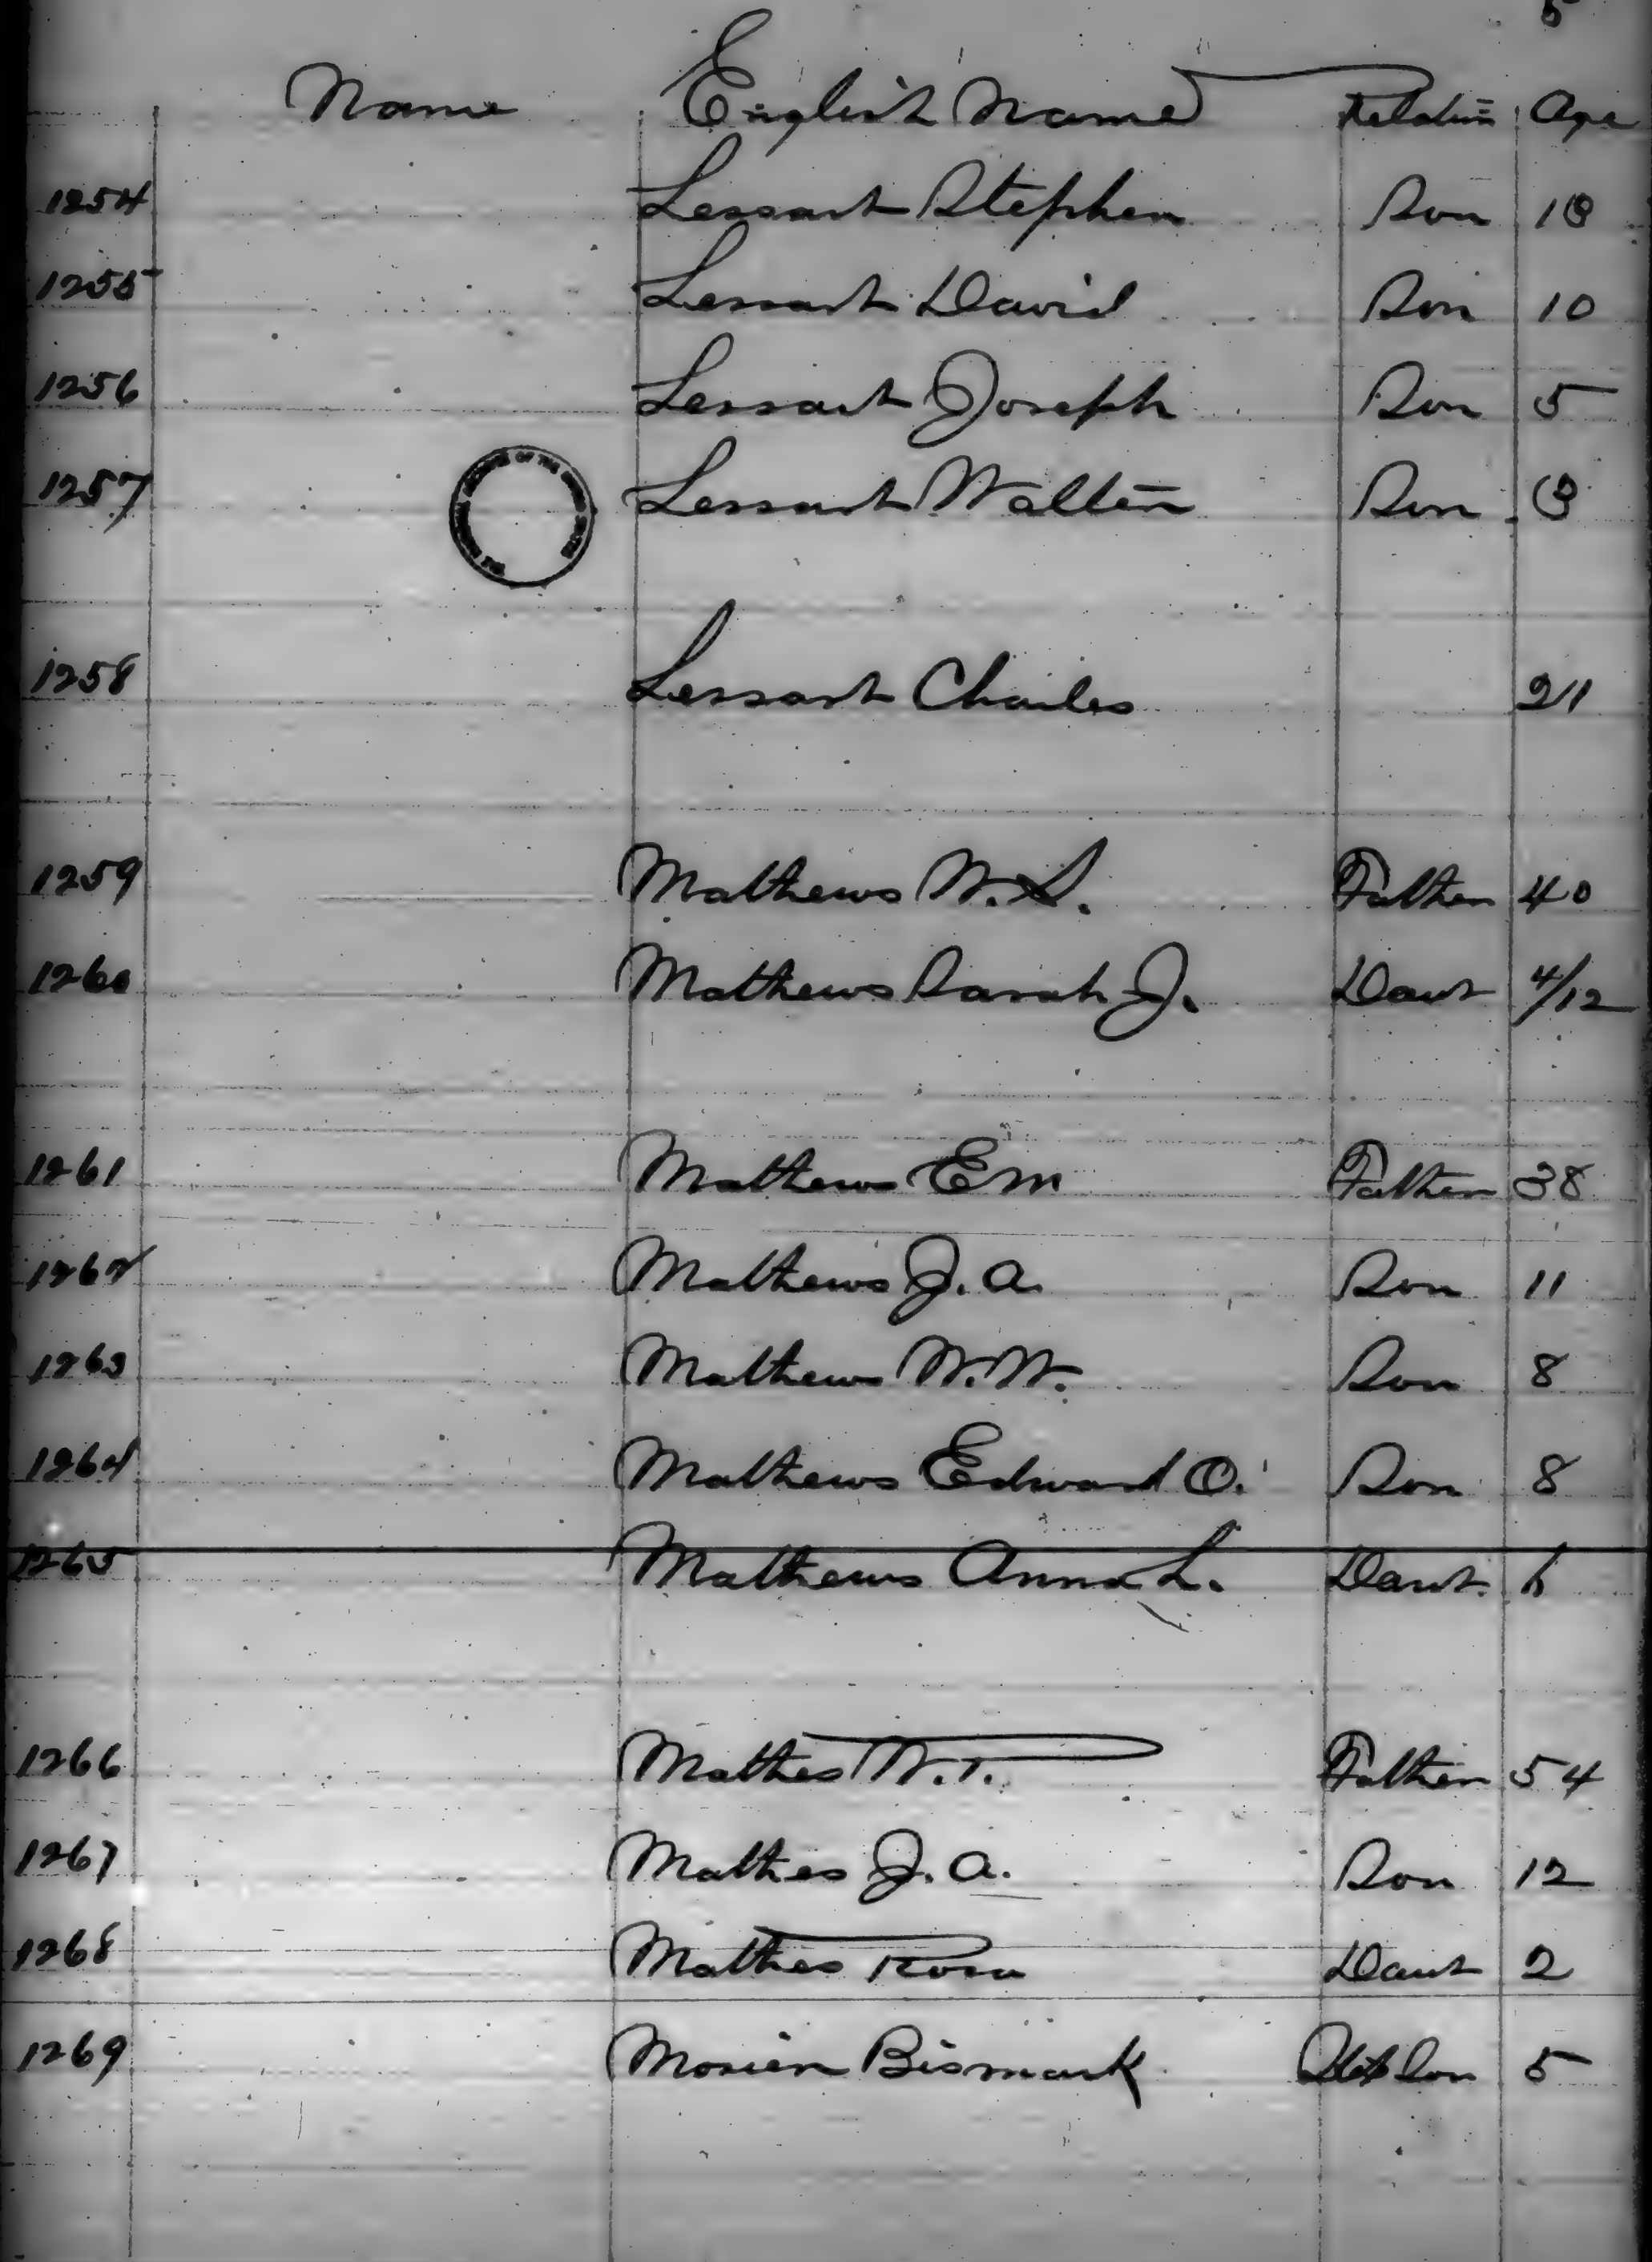 5
Name English Name Relation Age
1254 Lessart Stephen Son 13
1255 Lessart David Son 10
1256 Lessart Joseph Son 5
1257 Lessart Walter Son 3
THE NATIONAL ARCHIVES OF THE UNITED STATES
1258 Lessart Charles 21
1259 Mathews W.S. Father 40
1260 Mathews Sarah J. Daut 4/12
1261 Mathews E m Father 38
1262 Mathews J. A. Son 11
1263 Mathews W. W. Son 8
1264 Mathews Edward O. Son 8
1265 Mathews Anna L. Daut 6
1266 Mathes W. T. Father 54
1267 Mathes J. A. Son 12
1268 Mathes Rosa Daut 2
1269 Bismark Step Son 5